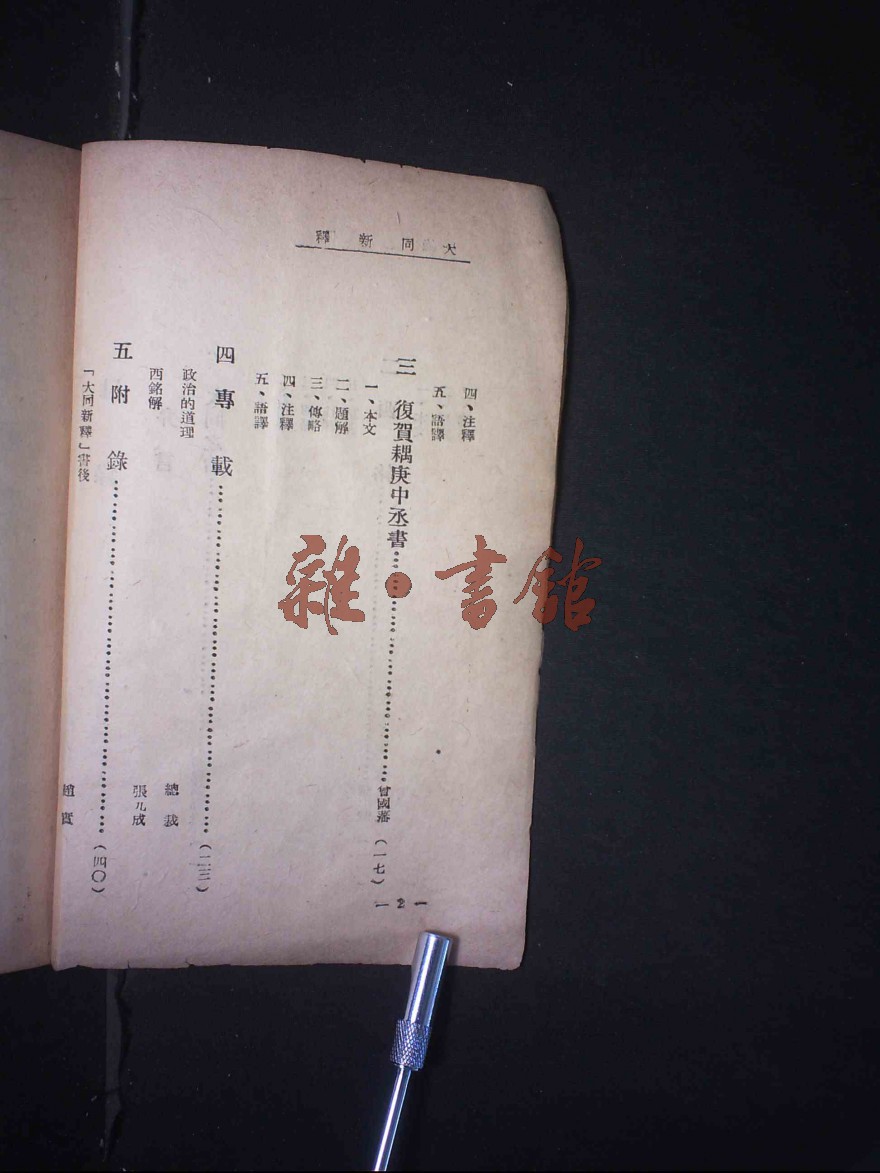 大同新釋
四、注釋
五、語譯
三 復賀耦庚中丞書……曾國藩(一七)
一、本文
二、題解
三、傳略
四、注釋
五、語譯
四 專載……(二三)
政治的道理 總裁
西銘解 張九成
五 附錄……(四〇)
「大同新釋」書後 趙實
—2—
雜·書館